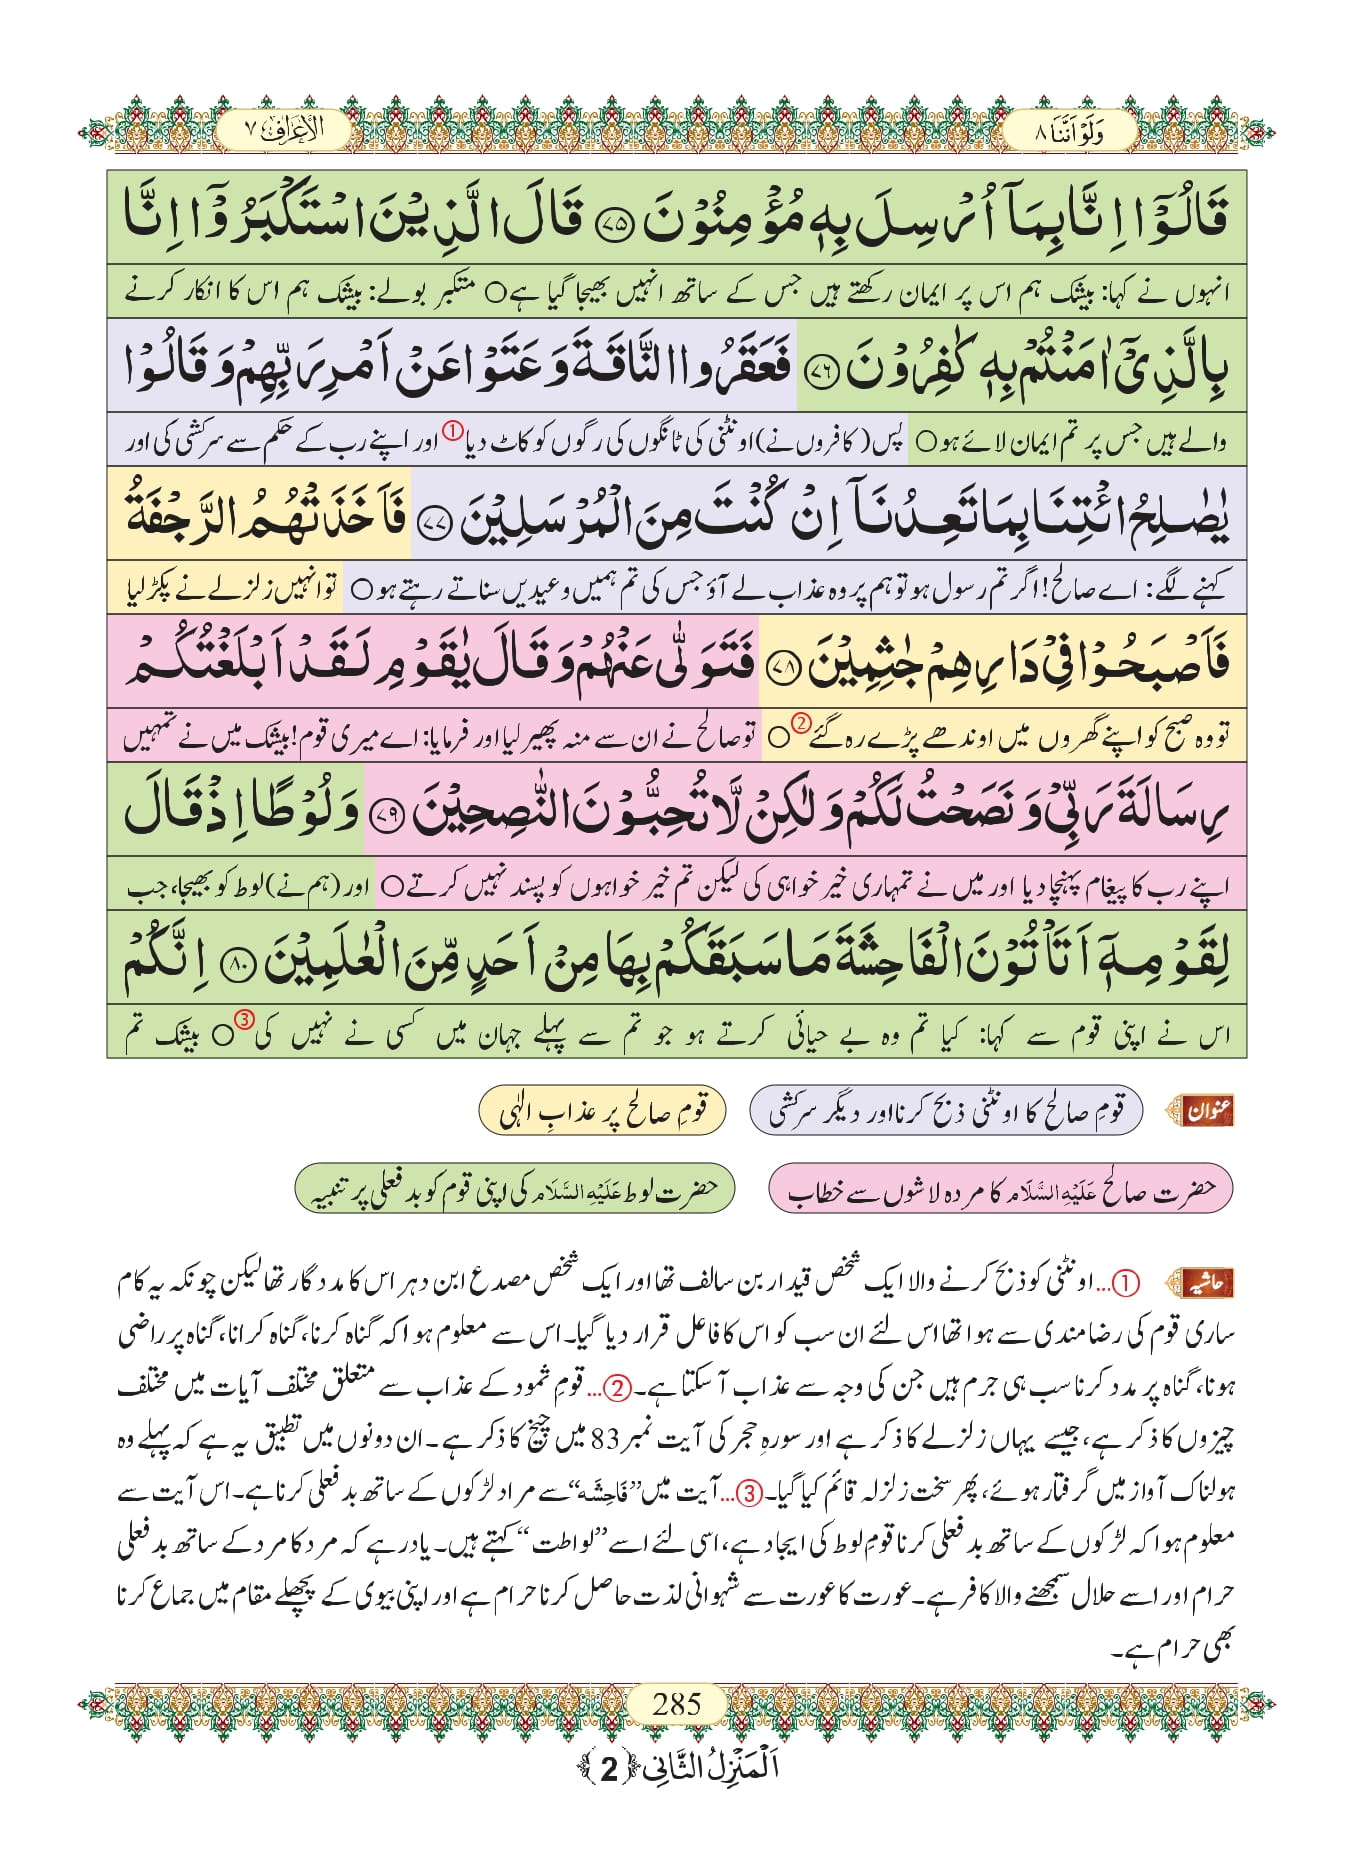 وَلَوْ اَنَّنَا ٨
الاعراف ٧
قَالُوْۤا اِنَّا بِمَاۤ اُرْسِلَ بِهٖ مُؤْمِنُوْنَ ﴿۷۵﴾ قَالَ الَّذِیْنَ اسْتَكْبَرُوْۤا اِنَّا
انہوں نے کہا: بیشک ہم اس پر ایمان رکھتے ہیں جس کے ساتھ انہیں بھیجا گیا ہے○ متکبر بولے: بیشک ہم اس کا انکار کرنے
بِالَّذِیْۤ اٰمَنْتُمْ بِهٖ كٰفِرُوْنَ ﴿۷۶﴾ فَعَقَرُوا النَّاقَةَ وَ عَتَوْا عَنْ اَمْرِ رَبِّهِمْ وَ قَالُوْا
والے ہیں جس پر تم ایمان لائے ہو○ پس( کافروں نے) اونٹنی کی ٹانگوں کی رگوں کو کاٹ دیا① اور اپنے رب کے حکم سے سرکشی کی اور
یٰصٰلِحُ ائْتِنَا بِمَا تَعِدُنَاۤ اِنْ كُنْتَ مِنَ الْمُرْسَلِیْنَ ﴿۷۷﴾ فَاَخَذَتْهُمُ الرَّجْفَةُ
کہنے لگے: اے صالح! اگر تم رسول ہو تو ہم پر وہ عذاب لے آؤ جس کی تم ہمیں وعیدیں سناتے رہتے ہو○ تو انہیں زلزلے نے پکڑ لیا
فَاَصْبَحُوْا فِیْ دَارِهِمْ جٰثِمِیْنَ ﴿۷۸﴾ فَتَوَلّٰى عَنْهُمْ وَ قَالَ یٰقَوْمِ لَقَدْ اَبْلَغْتُكُمْ
تو وہ صبح کو اپنے گھروں میں اوندھے پڑے رہ گئے②○ تو صالح نے ان سے منہ پھیر لیا اور فرمایا: اے میری قوم! بیشک میں نے تمہیں
رِسَالَةَ رَبِّیْ وَ نَصَحْتُ لَكُمْ وَ لٰكِنْ لَّا تُحِبُّوْنَ النّٰصِحِیْنَ ﴿۷۹﴾ وَ لُوْطًا اِذْ قَالَ
اپنے رب کا پیغام پہنچا دیا اور میں نے تمہاری خیر خواہی کی لیکن تم خیر خواہوں کو پسند نہیں کرتے○ اور (ہم نے) لوط کو بھیجا، جب
لِقَوْمِهٖۤ اَتَاْتُوْنَ الْفَاحِشَةَ مَا سَبَقَكُمْ بِهَا مِنْ اَحَدٍ مِّنَ الْعٰلَمِیْنَ ﴿۸۰﴾ اِنَّكُمْ
اس نے اپنی قوم سے کہا: کیا تم وہ بے حیائی کرتے ہو جو تم سے پہلے جہان میں کسی نے نہیں کی③○ بیشک تم
عنوان قومِ صالح کا اونٹنی ذبح کرنا اور دیگر سرکشی قومِ صالح پر عذابِ الٰہی
حضرت صالح عَلَیْهِ السَّلَام کا مردہ لاشوں سے خطاب حضرت لوط عَلَیْهِ السَّلَام کی اپنی قوم کو بدفعلی پر تنبیہ
حاشیہ ①... اونٹنی کو ذبح کرنے والا ایک شخص قیدار بن سالف تھا اور ایک شخص مصدع ابن دہر اس کا مددگار تھا لیکن چونکہ یہ کام
ساری قوم کی رضامندی سے ہوا تھا اس لئے ان سب کو اس کا فاعل قرار دیا گیا۔ اس سے معلوم ہوا کہ گناہ کرنا، گناہ کرانا، گناہ پر راضی
ہونا، گناہ پر مدد کرنا سب ہی جرم ہیں جن کی وجہ سے عذاب آ سکتا ہے۔②... قومِ ثمود کے عذاب سے متعلق مختلف آیات میں مختلف
چیزوں کا ذکر ہے، جیسے یہاں زلزلے کا ذکر ہے اور سورہِ حجر کی آیت نمبر 83 میں چیخ کا ذکر ہے۔ ان دونوں میں تطبیق یہ ہے کہ پہلے وہ
ہولناک آواز میں گرفتار ہوئے، پھر سخت زلزلہ قائم کیا گیا۔③... آیت میں ”فَاحِشَه“ سے مراد لڑکوں کے ساتھ بدفعلی کرنا ہے۔ اس آیت سے
معلوم ہوا کہ لڑکوں کے ساتھ بدفعلی کرنا قومِ لوط کی ایجاد ہے، اسی لئے اسے ”لواطت“ کہتے ہیں۔ یاد رہے کہ مرد کا مرد کے ساتھ بدفعلی
حرام اور اسے حلال سمجھنے والا کافر ہے۔ عورت کا عورت سے شہوانی لذت حاصل کرنا حرام ہے اور اپنی بیوی کے پچھلے مقام میں جماع کرنا
بھی حرام ہے۔
285
اَلْمَنْزِلُ الثَّانِی ﴿2﴾